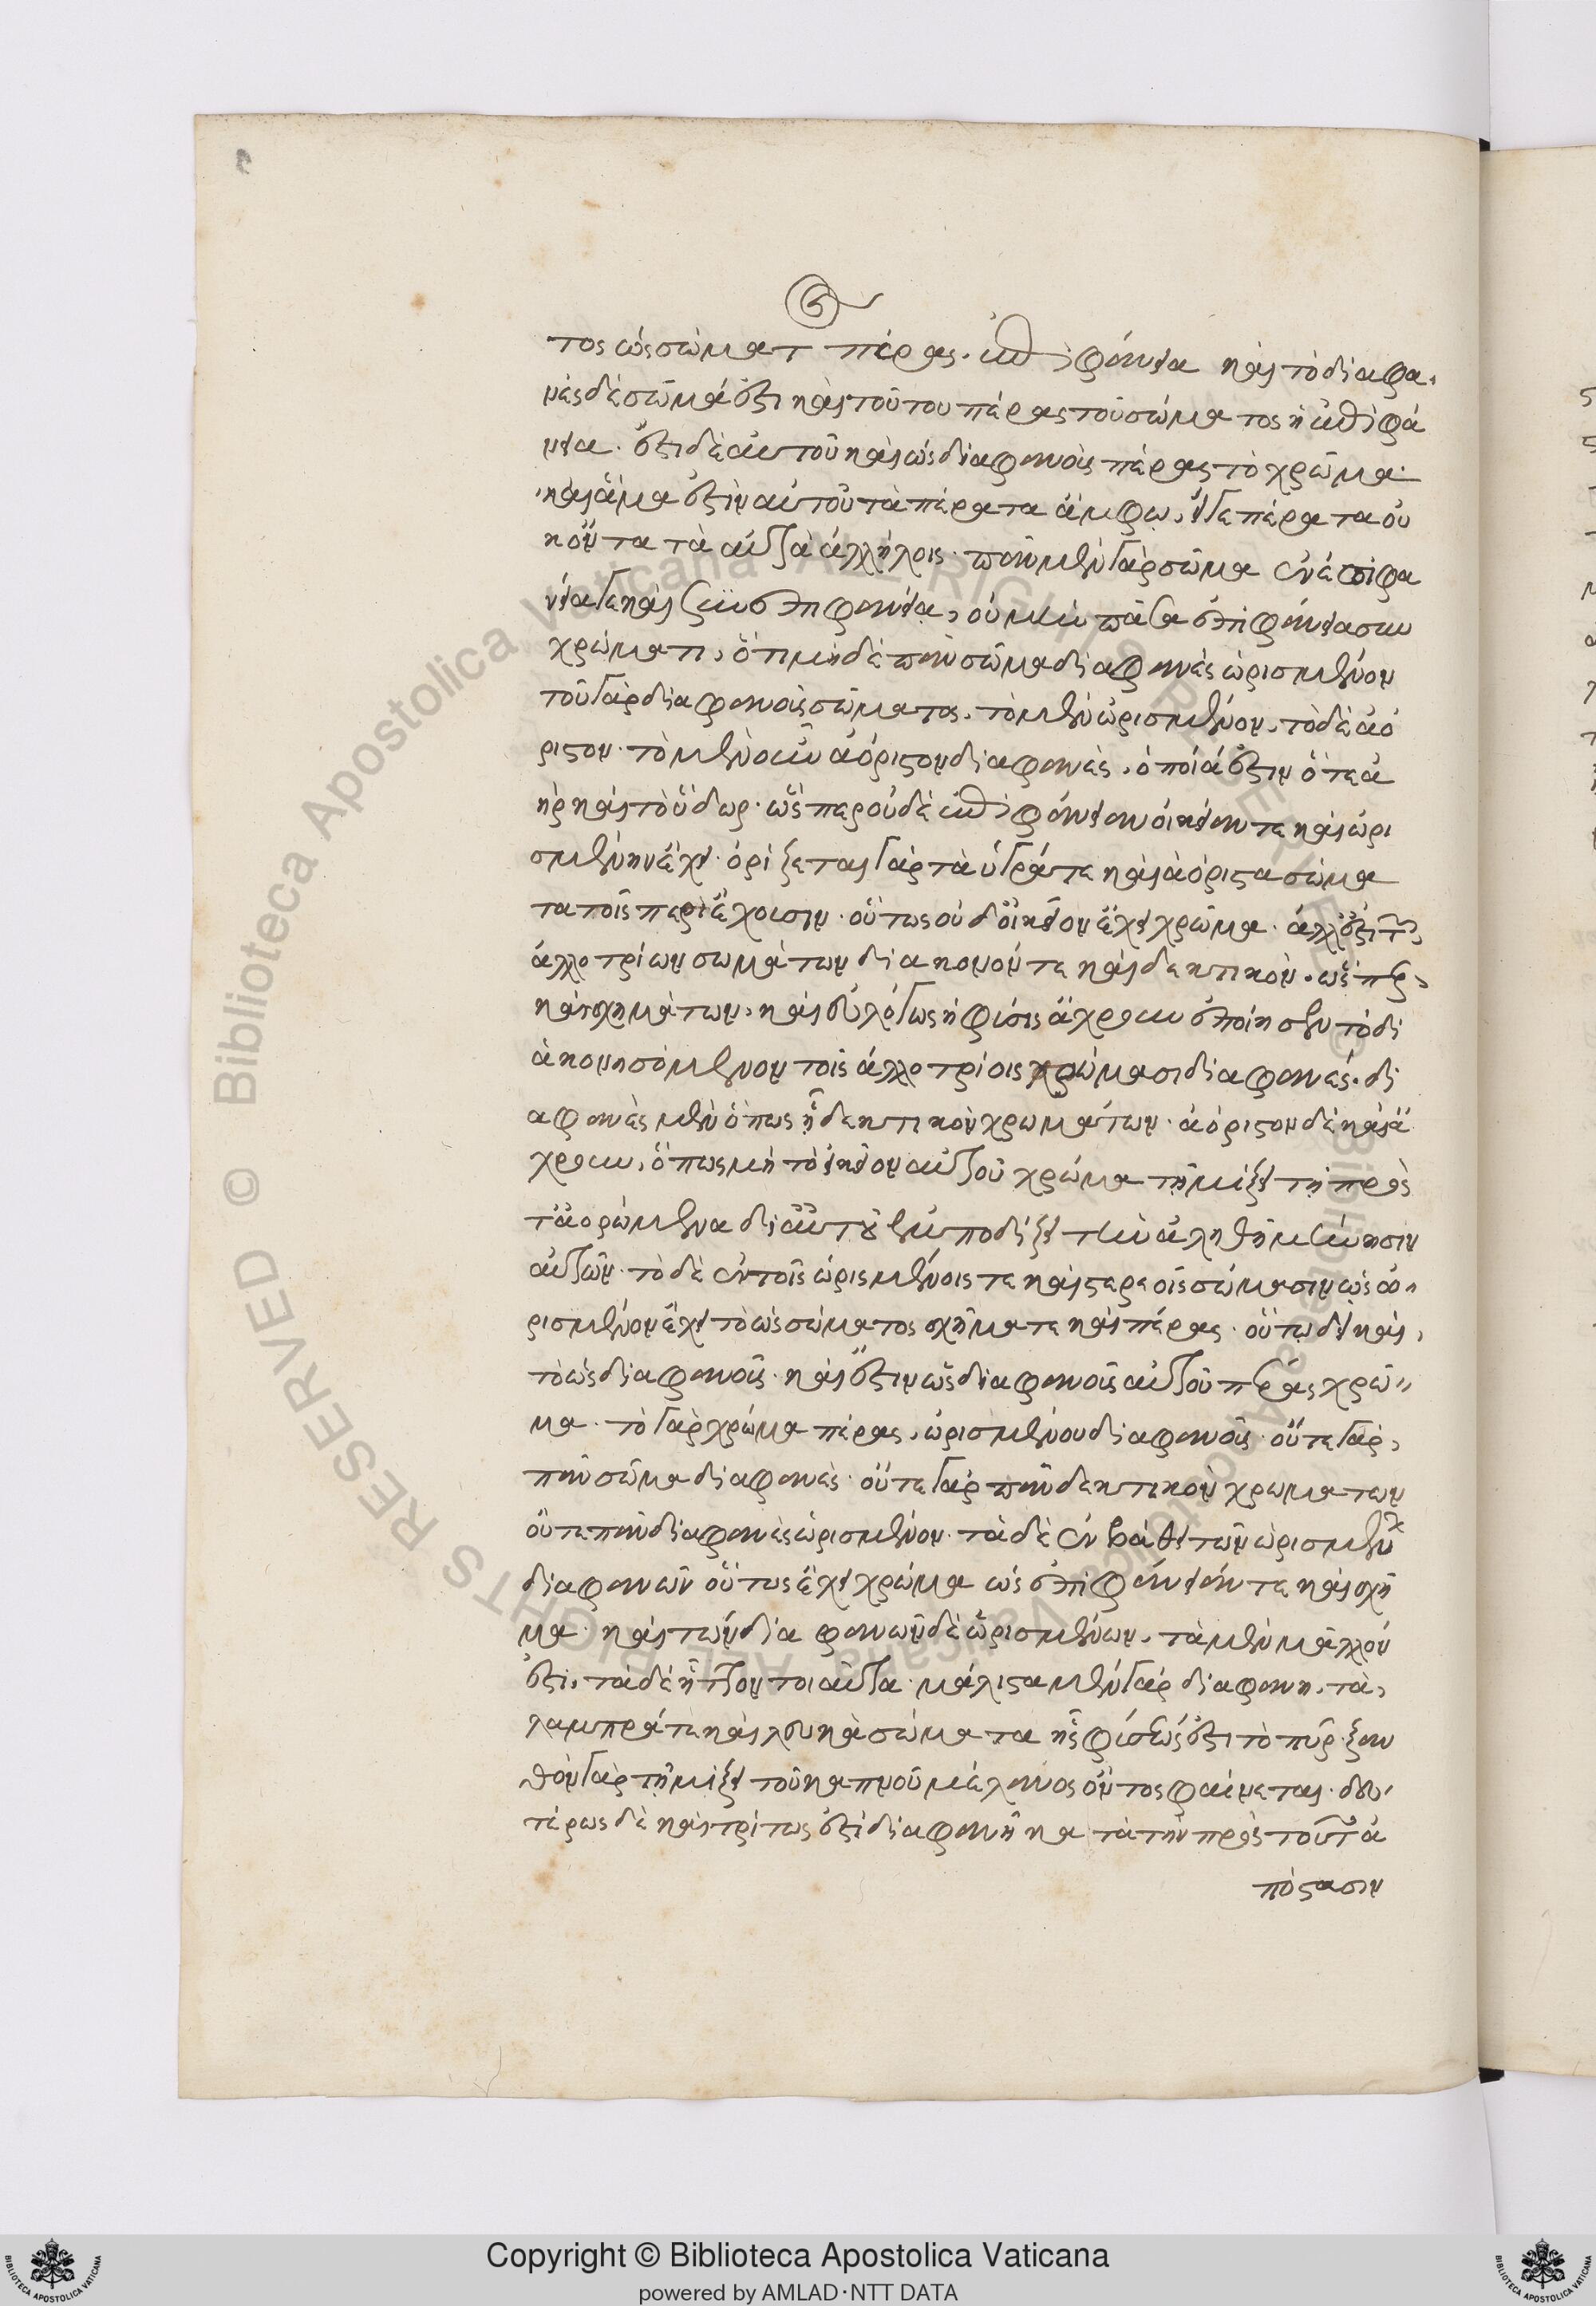 τος ὡς σώματ πέρας. ἐπιφάνεια καὶ τὸ διαφα
νὲς δὲ σῶμά ἐστι καὶ τούτου πέρας τοῦ σώματος ἡ ἐπιφά
νεια. ἔστι δὲ αὐτοῦ καὶ ὡς διαφανοῦς πέρας τὸ χρῶμα.
καὶ ἅμα ἐστὶν αὐτοῦ τὰ πέρατα ἄμφω, εἴγε πέρατα οὐ
κ ὄντα τὰ αὐτὰ ἀλλήλοις. πᾶν μὲν γὰρ σῶμα ἐν ἐπιφα
νείᾳ γε καὶ σὺν ἐπιφανείᾳ, οὐ μὴν πᾶσα ἐπιφάνεια σὺν
χρώματι, ὅτι μηδὲ πᾶν σῶμα διαφανὲς ὡρισμένον
τοῦ γὰρ διαφανοῦς σώματος, τὸ μὲν ὡρισμένον, τὸ δὲ ἀό
ριστον. τὸ μὲν οὖν ἀόριστον διαφανὲς, ὁποῖά ἐστιν ὅ τε ἀ
ὴρ καὶ τὸ ὕδωρ. ὥσπερ οὐδὲ ἐπιφάνειαν οἰκείαν τε καὶ ὡρι
σμένην ἔχει. ὁρίζεται γὰρ τὰ ὑγρά τε καὶ ἀόριστα σώμα
τα τοῖς περιέχουσιν. οὕτως οὐδ' οἰκεῖον ἔχει χρῶμα. ἀλλ' ἔστι τῶν
ἀλλοτρίων σωμάτων διάκονόν τε καὶ δεκτικὸν. ὥσπερ
καὶ σχημάτων, καὶ εὐλόγως ἡ φύσις ἄχρουν ἐποίησεν τὸ δι
ακονησόμενον τοῖς ἀλλοτρίοις χρώμασι διαφανές. δι
αφανὲς μὲν ὅπως ᾖ δεκτικὸν χρωμάτων. ἀόριστον δὲ καὶ ἄ
χρουν, ὅπως μὴ τὸ οἰκεῖον αὐτοῦ χρῶμα τῇ μίξει τῇ πρὸς
τὰ ὁρώμενα δι' αὐτοῦ ἐμποδίζει τὴν ἀληθῆ μήνυσιν
αὐτῶν. τὸ δὲ ἐν τοῖς ὡρισμένοις τε καὶ στερεοῖς σώμασιν ὡς ὡ
ρισμένον ἔχει τὸ ὡς σώματος σχῆμά τε καὶ πέρας. οὕτω δὴ καὶ
τὸ ὡς διαφανοῦς. καὶ ἔστιν ὡς διαφανοῦς αὐτοῦ πέρας χρῶ
μα. τὸ γὰρ χρῶμα πέρας, ὡρισμένου διαφανοῦς. οὔτε γὰρ
πᾶν σῶμα διαφανὲς. οὔτε γὰρ πᾶν δεκτικὸν χρωμάτων
οὔτε πᾶν διαφανὲς ὡρισμένον. τὰ δὲ ἐν βάθει τῶν ὡρισμένων
διαφανῶν οὕτως ἔχει χρῶμα ὡς ἐπιφάνειάν τε καὶ σχῆ
μα. καὶ τῶν διαφανῶν δὲ ὡρισμένων, τὰ μὲν μᾶλλόν
ἐστι, τὰ δὲ ἧττον τοιαῦτα. μάλιστα μὲν γὰρ διαφανῆ, τὰ
λαμπρά τε καὶ λευκὰ σώματα ἧς φύσεώς ἐστι τὸ πῦρ. ξαν
θὸν γὰρ τῇ μίξει τοῦ καπνοῦ μέλανος ὄντος φαίνεται. δευ
τέρως δὲ καὶ τρίτως ἐστὶ διαφανῆ κατὰ τὴν πρὸς τοῦτο ἀ
πόστασιν
Copyright © Biblioteca Apostolica Vaticana
powered by AMLAD·NTT DATA